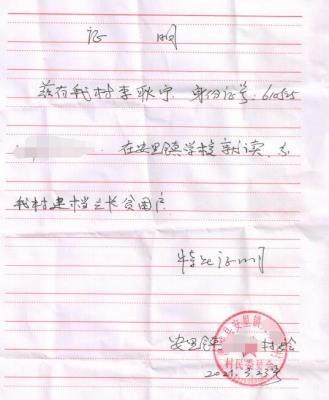 证 明
兹有我村李歌宁,身份证号:610525
在安里镇学校就读,为
我村建档立卡贫困户。
特此证明
安里镇 村委会
村民委员会
2021.3.23号